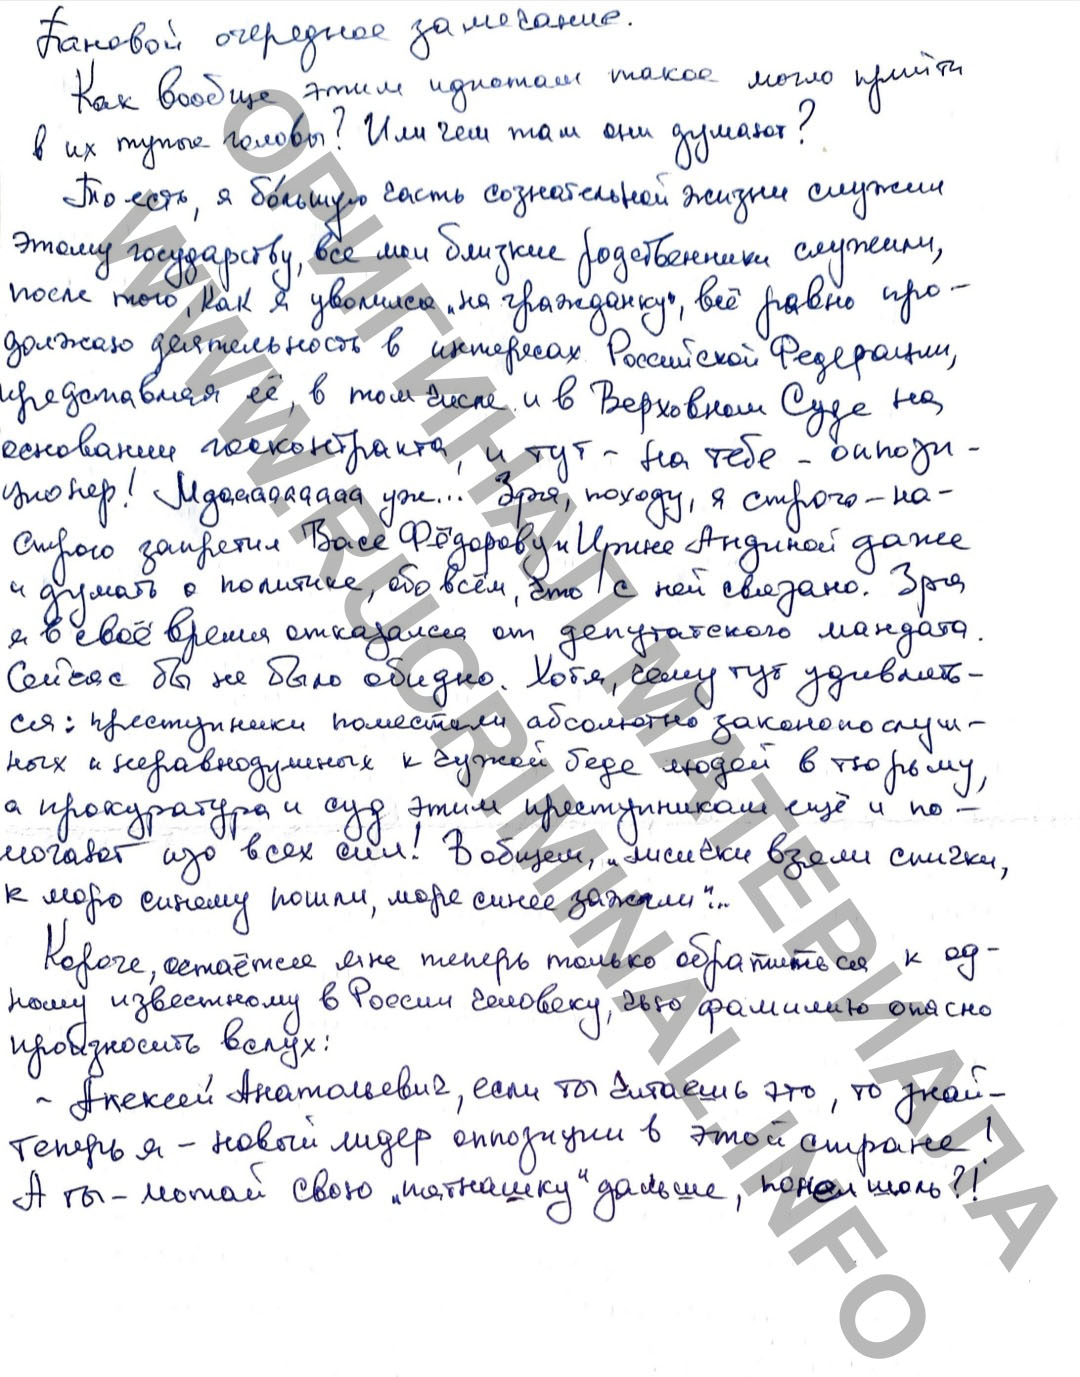 Пановой очередное замечание.
Как вообще этим идиотам такое могло прийти
в их тупые головы? Или чем там они думают?
То есть, я бо́льшую часть сознательной жизни служил
этому государству, все мои близкие родственники служили,
после того, как я уволился „на гражданку", всё равно про-
должаю деятельность в интересах Российской Федерации,
представляя её, в том числе и в Верховном Суде на
основании госконтракта, и тут - на тебе - оппози-
ционер! Мдаааааааааа уж... Зря, походу, я строго-на-
строго запретил Васе Фёдорову и Ирине Андиной даже
и думать о политике, обо всём, что с ней связано. Зря
я в своё время отказался от депутатского мандата.
Сейчас бы не было обидно. Хотя, чему тут удивлять-
ся: преступники поместили абсолютно законопослуш-
ных и неравнодушных к чужой беде людей в тюрьму,
а прокуратура и суд этим преступникам ещё и по-
могают изо всех сил! В общем, „лисички взяли спички,
к морю синему пошли, море синее зажгли"...
Короче, остаётся мне теперь только обратиться к од-
ному известному в России человеку, чью фамилию опасно
произносить вслух:
- Алексей Анатольевич, если ты читаешь это, то знай-
теперь я - новый лидер оппозиции в этой стране!
А ты - мотай свою „пятнашку" дальше, понял шоль?!
ОРИГИНАЛ МАТЕРИАЛА
WWW.RUCRIMINAL.INFO